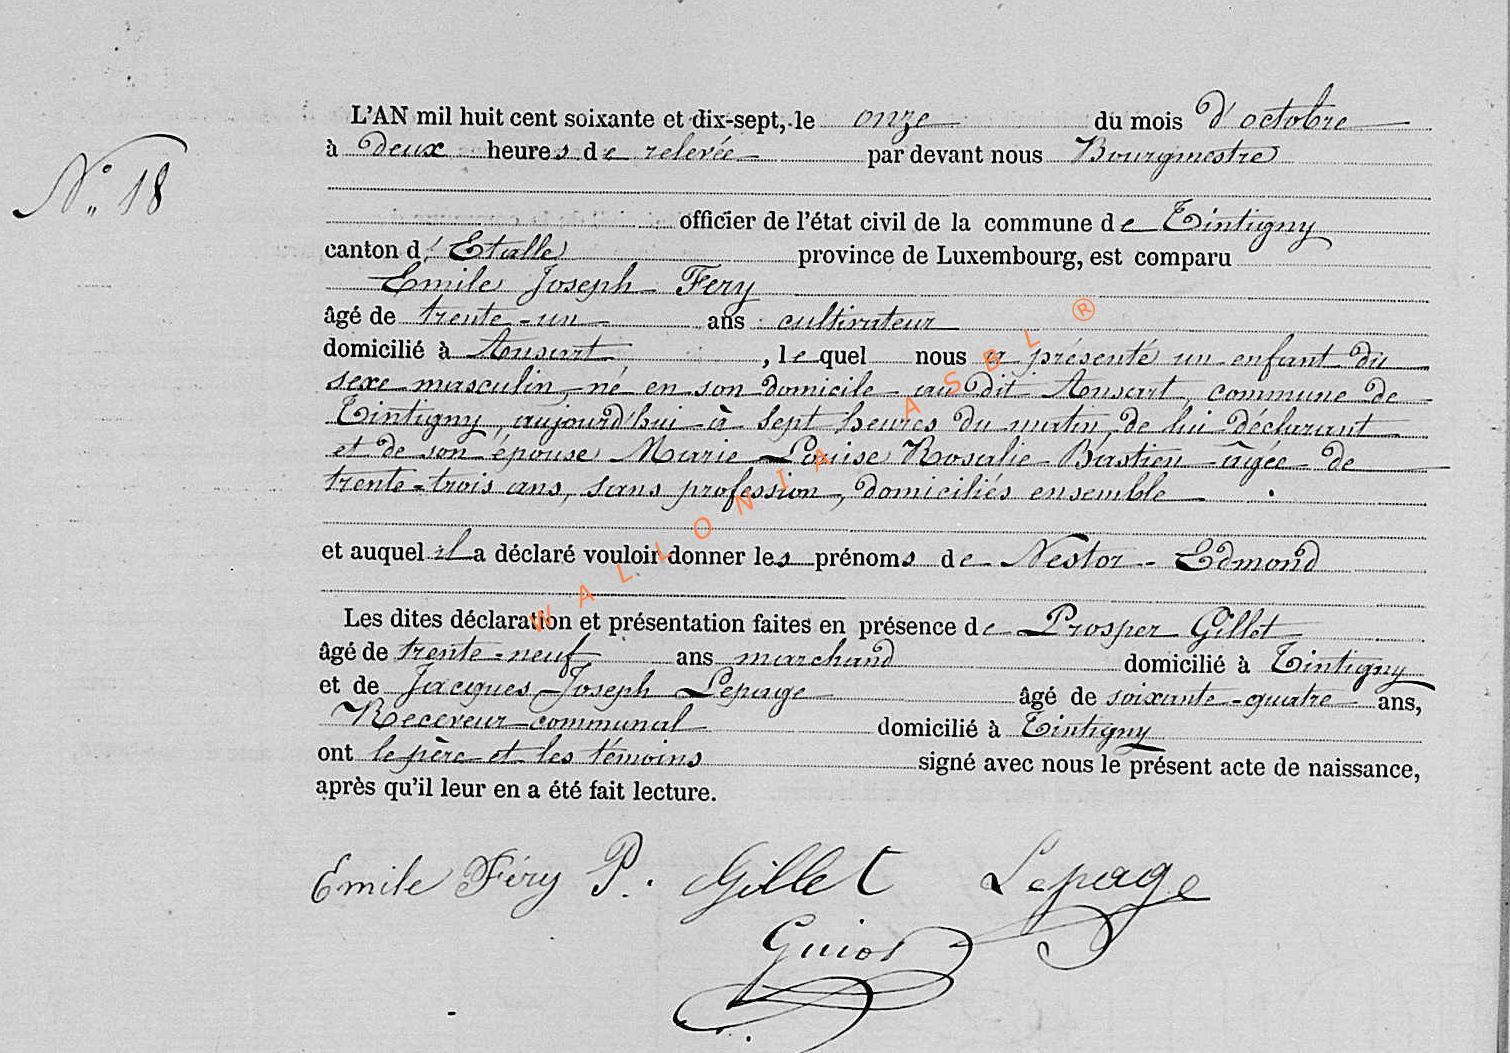 L'AN mil huit cent soixante et dix-sept, le onze du mois d'octobre
à deux heures de relevée par devant nous Bourgmestre
N° 18
officier de l'état civil de la commune de Tintigny
canton d'Etalle province de Luxembourg, est comparu
Emile Joseph Fery
âgé de trente-un ans cultivateur
domicilié à Ansart, lequel nous a présenté un enfant du
sexe masculin, né en son domicile au dit Ansart, commune de
Tintigny, aujourd'hui à sept heures du matin, de lui déclarant
et de son épouse Marie Louise Rosalie Bastien âgée de
trente-trois ans, sans profession, domiciliés ensemble.
et auquel il a déclaré vouloir donner les prénoms de Nestor-Edmond
Les dites déclaration et présentation faites en présence de Prosper Gillet
âgé de trente-neuf ans marchand domicilié à Tintigny
et de Jacques Joseph Lepage âgé de soixante-quatre ans,
Receveur communal domicilié à Tintigny
ont le père et les témoins signé avec nous le présent acte de naissance,
après qu'il leur en a été fait lecture.
Emile Féry P. Gillet Lepage
Guiot
WALLONIA ASBL ®